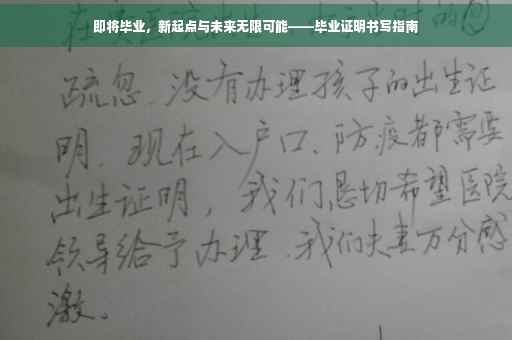 即将毕业，新起点与未来无限可能——毕业证明书写指南
疏忽、没有办理孩子的出生证
明、现在入户口、防疫都需要
出生证明，我们恳切希望医院
领导给予办理、我们夫妻万分感
激。